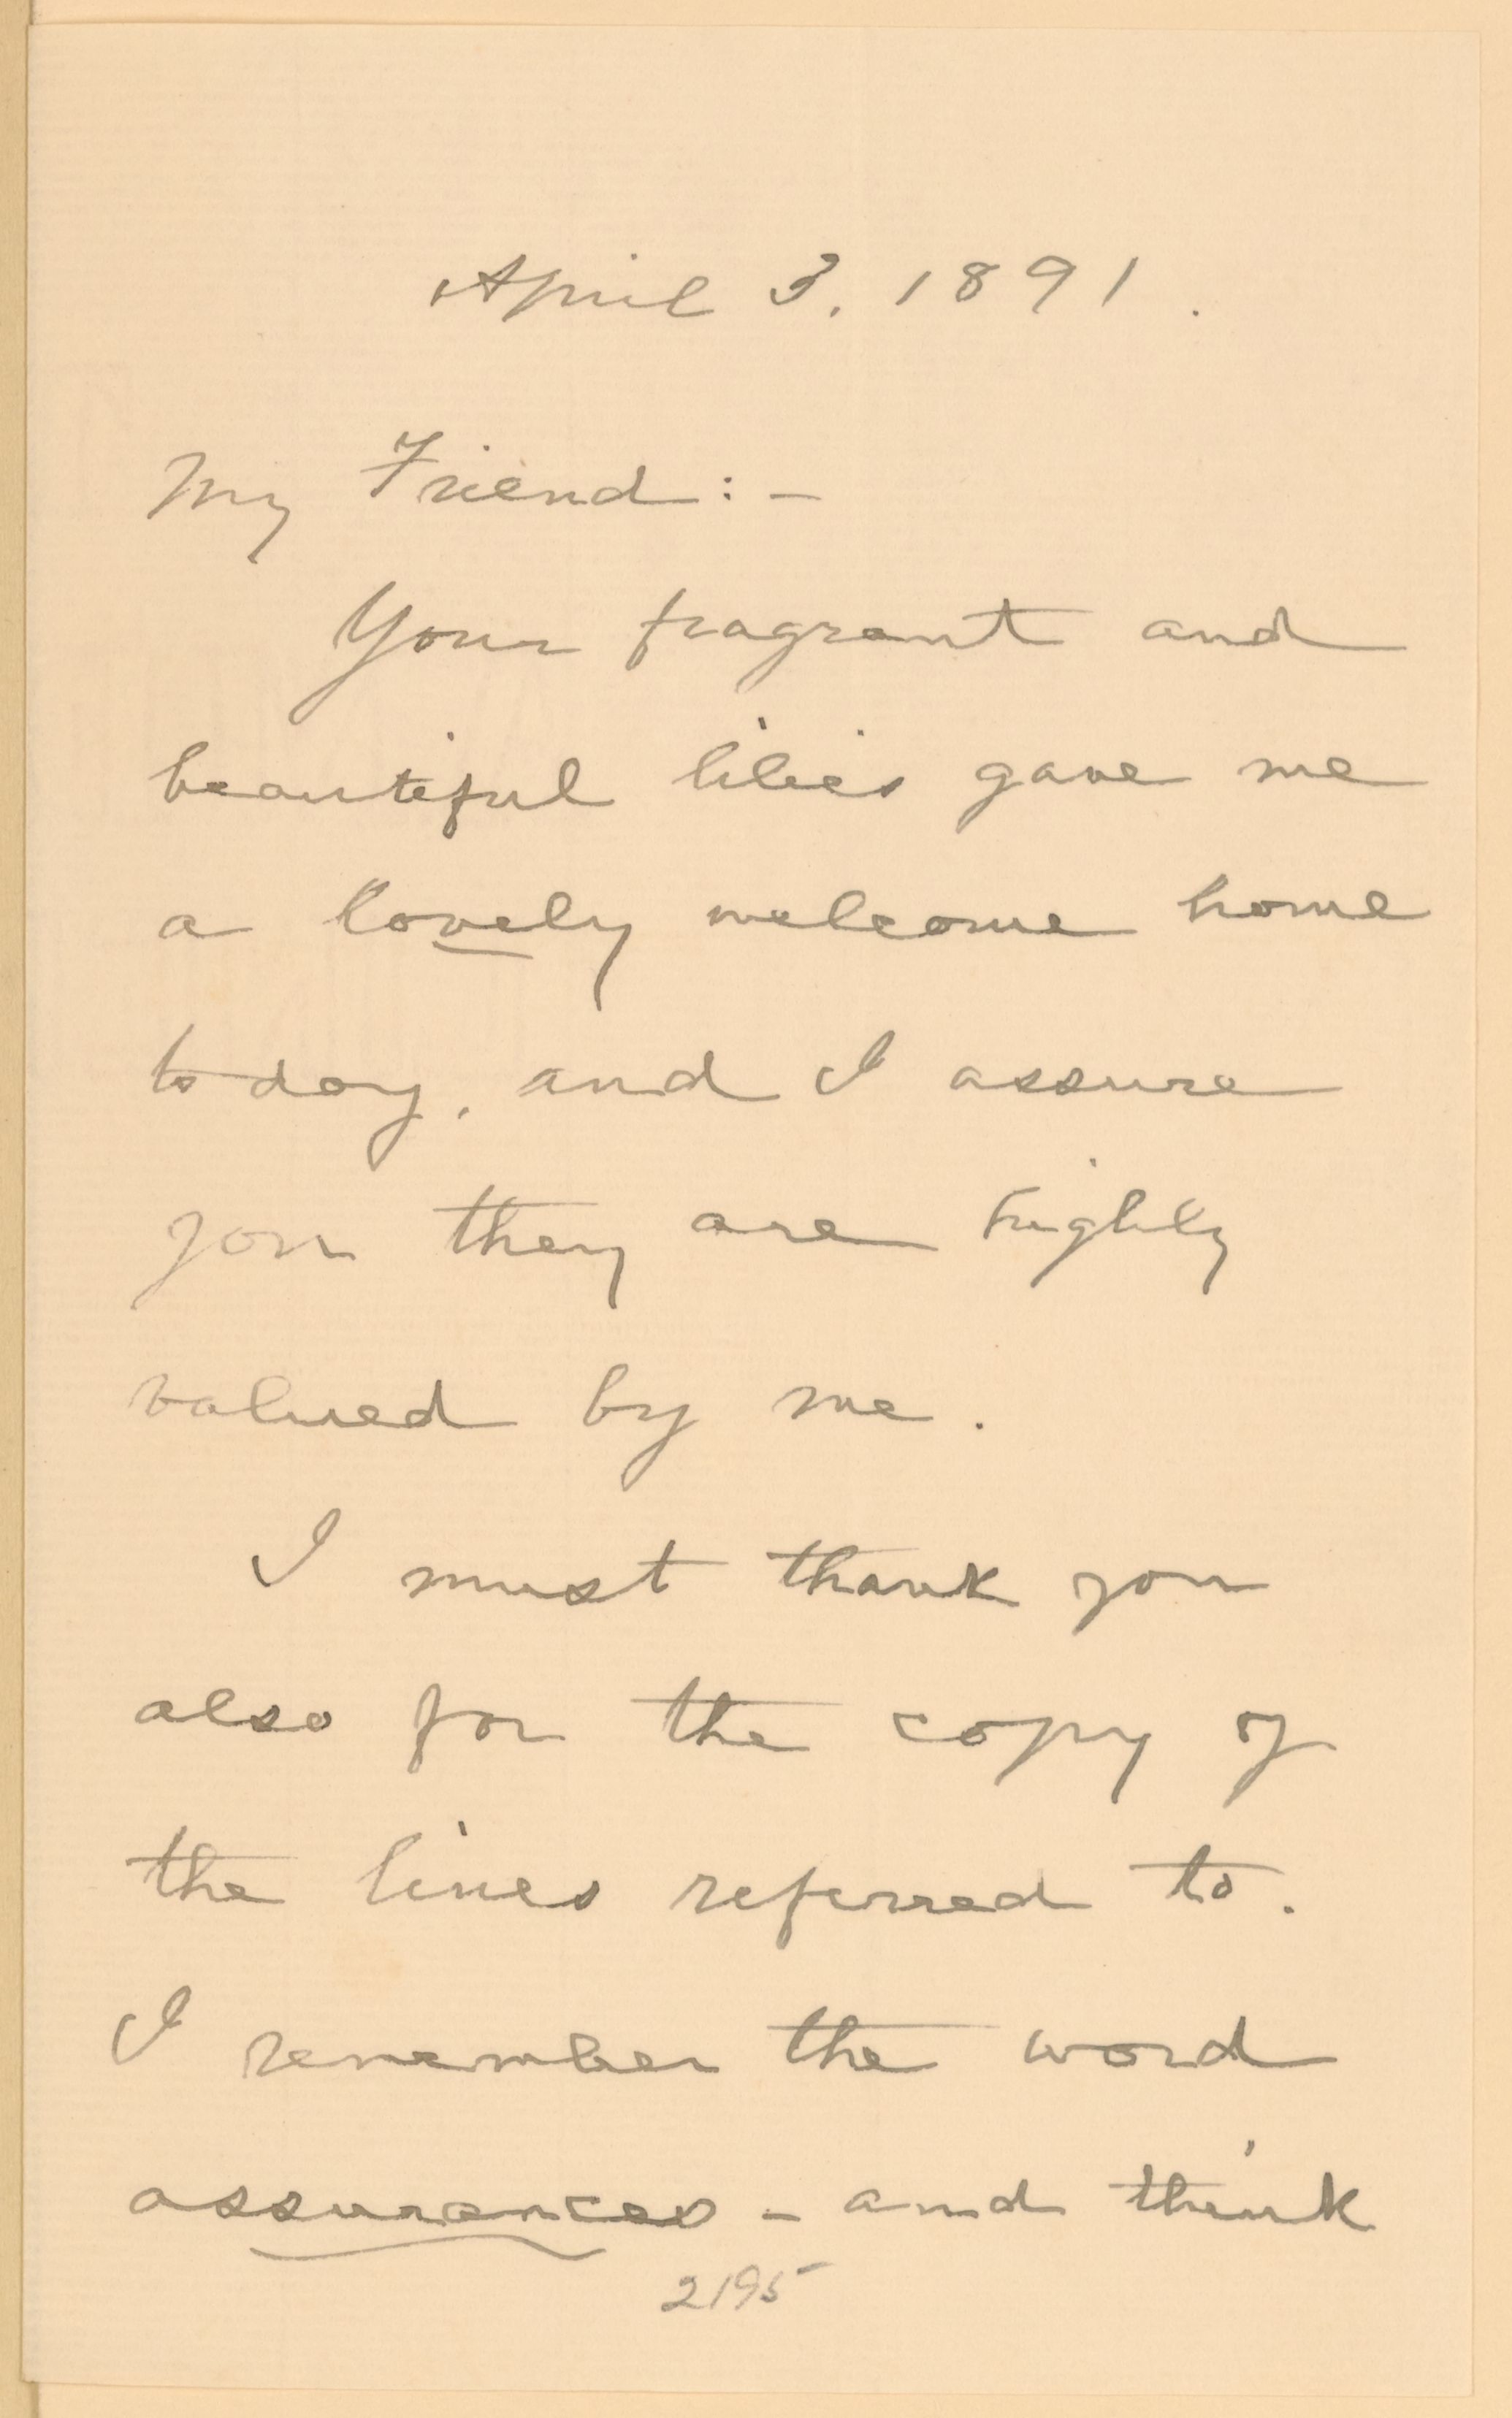 April 3, 1891.
My Friend:—
Your fragrant and
beautiful lilies gave me
a lovely welcome home
to day, and I assure
you they are highly
valued by me.
I must thank you
also for the copy of
the lines referred to.
I remember the word
assurances - and think
2195